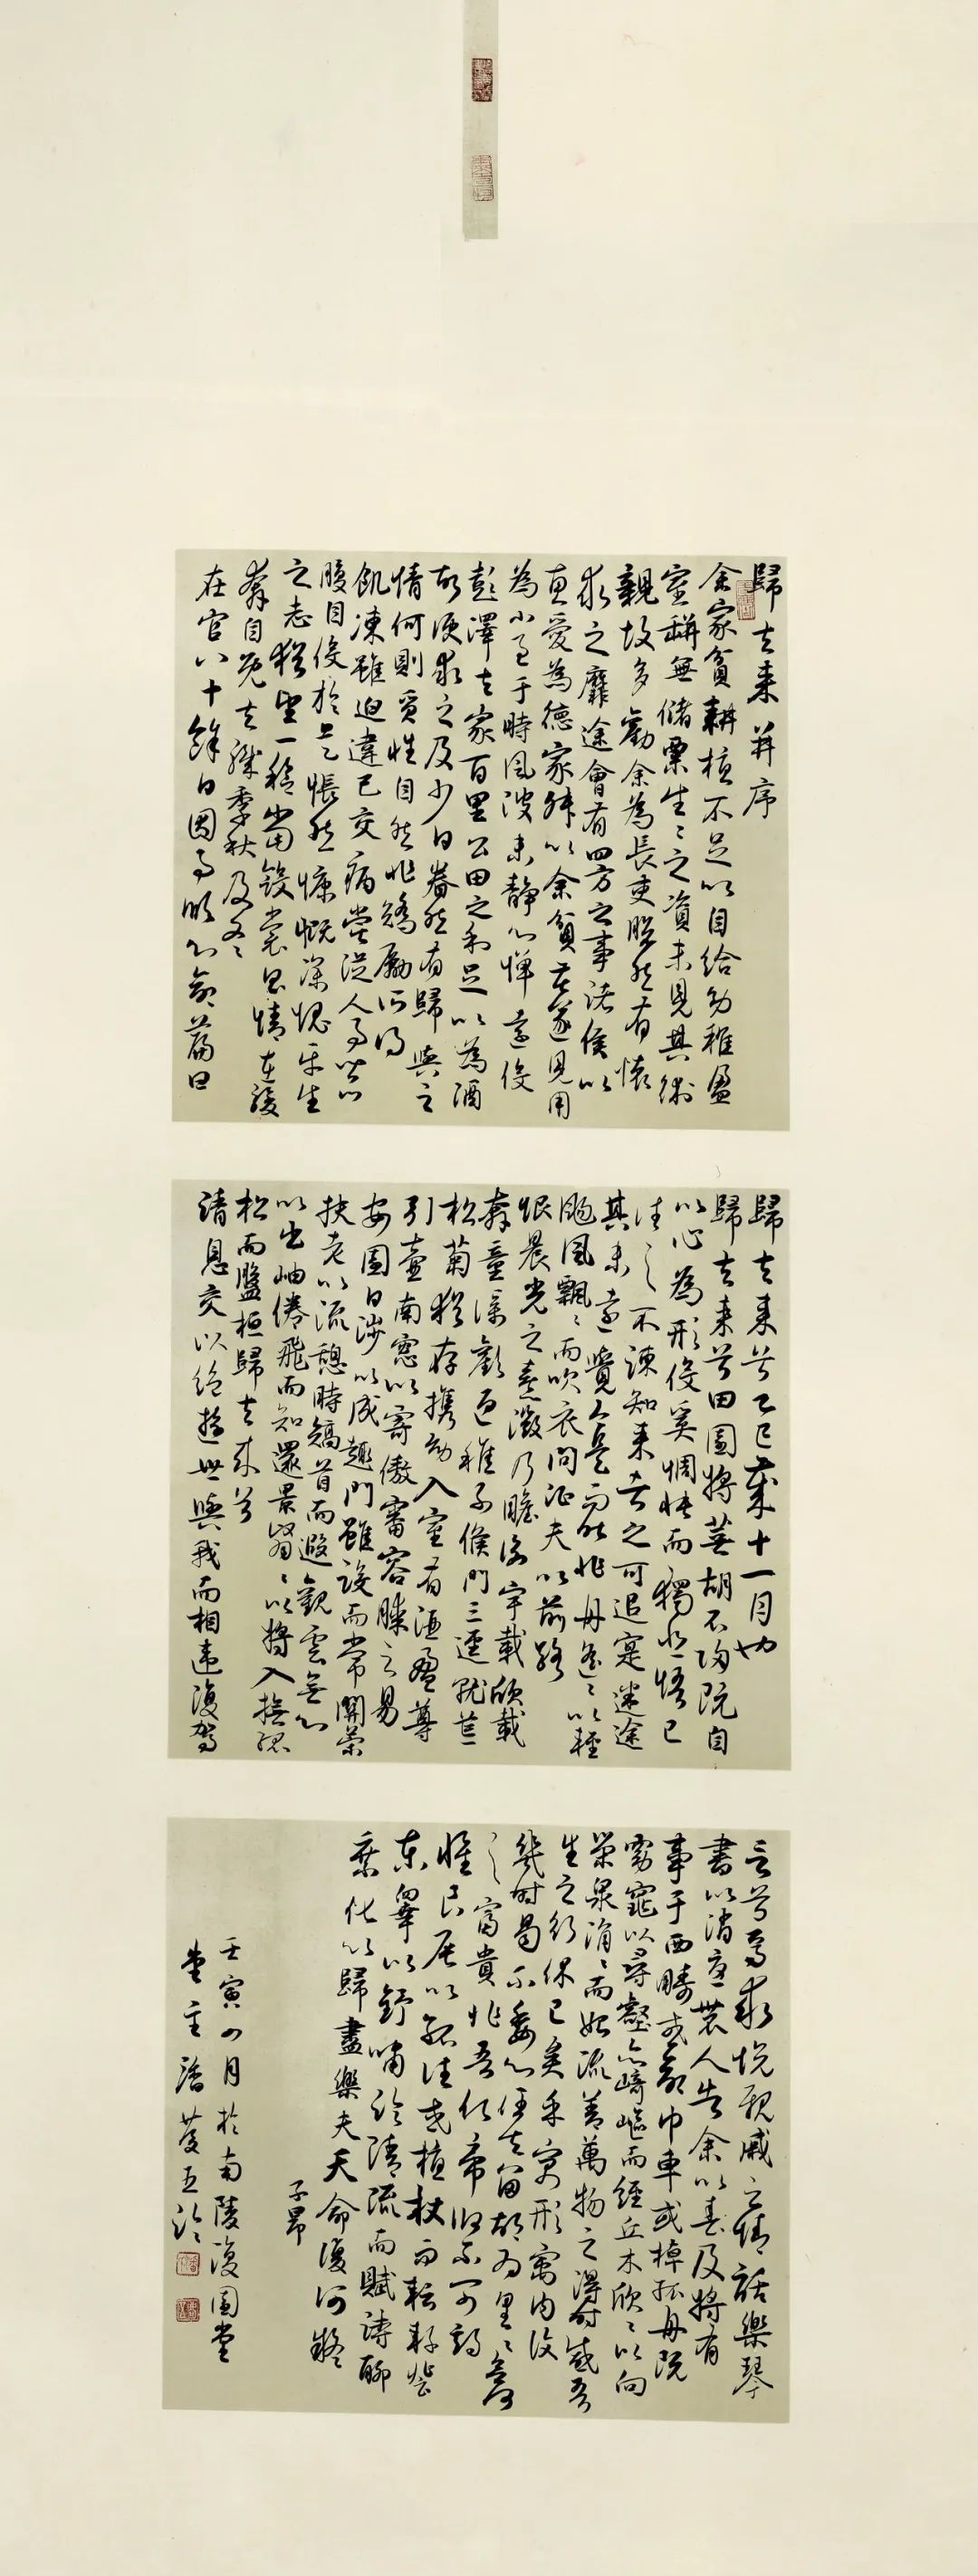 歸去来并序
余家貧耕植不足以自給幼稚盈
室缾無儲粟生〻之資未見其術
親故多勸余為長吏脫然有懷
求之靡途會有四方之事諸侯以
惠愛為德家叔以余貧苦遂見用
為小邑于時風波未靜心憚遠役
彭澤去家百里公田之利足以為酒
故便求之及少日眷然有歸與之
情何則質性自然非矯厲所得
飢凍雖迫違己交病嘗從人事皆口
腹自役於是悵然慷慨深愧平生
之志猶望一稔當斂裳宵逝情在駿
奔自免去職季秋及冬
在官八十餘日因事順心命篇曰
歸去来兮乙巳歲十一月也
歸去来兮田園將蕪胡不歸既自
以心為形役奚惆悵而獨悲悟已
往之不諫知来者之可追寔迷途
其未遠覺今是而昨非舟遙〻以輕
颺風飄〻而吹衣問征夫以前路
恨晨光之熹微乃瞻衡宇載欣載
奔童僕歡迎稚子候門三逕就荒
松菊猶存攜幼入室有酒盈尊
引壺南窓以寄傲審容膝之易
安園日涉以成趣門雖設而常關策
扶老以流憩時矯首而遐觀雲無心
以出岫倦飛而知還景翳〻以將入撫孤
松而盤桓歸去来兮
請息交以絶遊世與我而相違復駕
言兮焉求悅親戚之情話樂琴
書以消憂農人告余以春及將有
事于西疇或命巾車或棹孤舟既
窈窕以尋壑亦崎嶇而經丘木欣〻以向
榮泉涓〻而始流善萬物之得時感吾
生之行休已矣乎寓形宇内復
幾時曷不委心任去留胡為遑〻欲何
之富貴非吾願帝鄉不可期
懷良辰以孤往或植杖而耘耔登
東皋以舒嘯臨清流而賦詩聊
乘化以歸盡樂夫天命復何疑
子昂
壬寅四月於南陵復園堂
堂主潘慶五臨